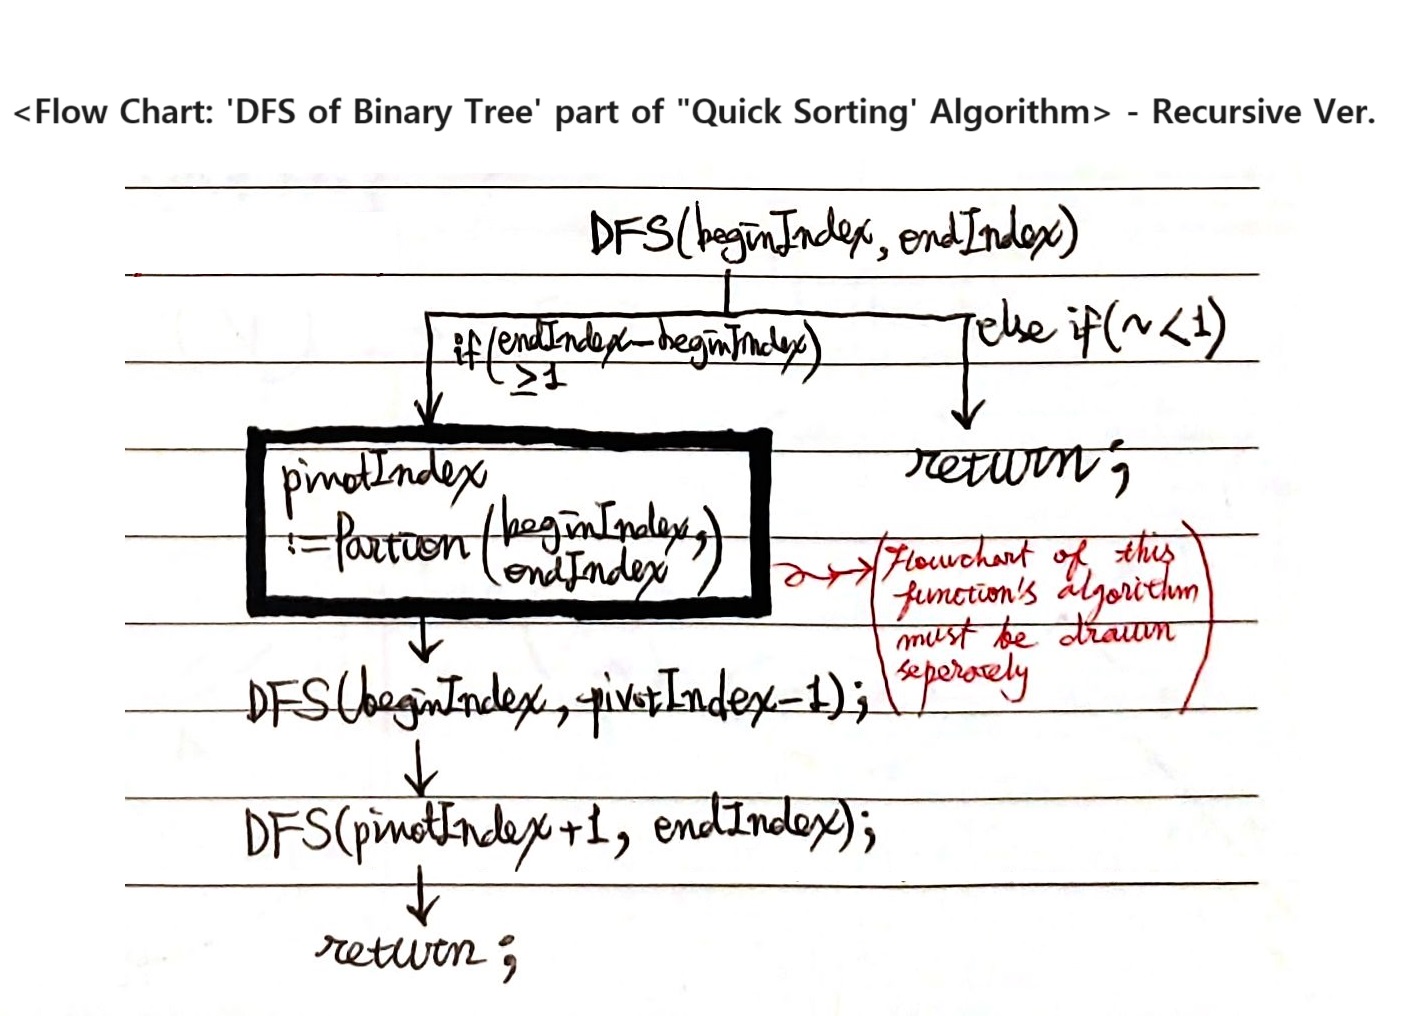 <Flow Chart: 'DFS of Binary Tree' part of "Quick Sorting' Algorithm> - Recursive Ver.
DFS(beginIndex, endIndex)
if(endIndex-beginIndex)
≥1
else if(~<1)
return;
pivotIndex
:=Partion(beginIndex,
endIndex)
(Flowchart of this
function's algorithm
must be drawn
seperately)
DFS(beginIndex, pivotIndex-1);
DFS(pivotIndex+1, endIndex);
return;